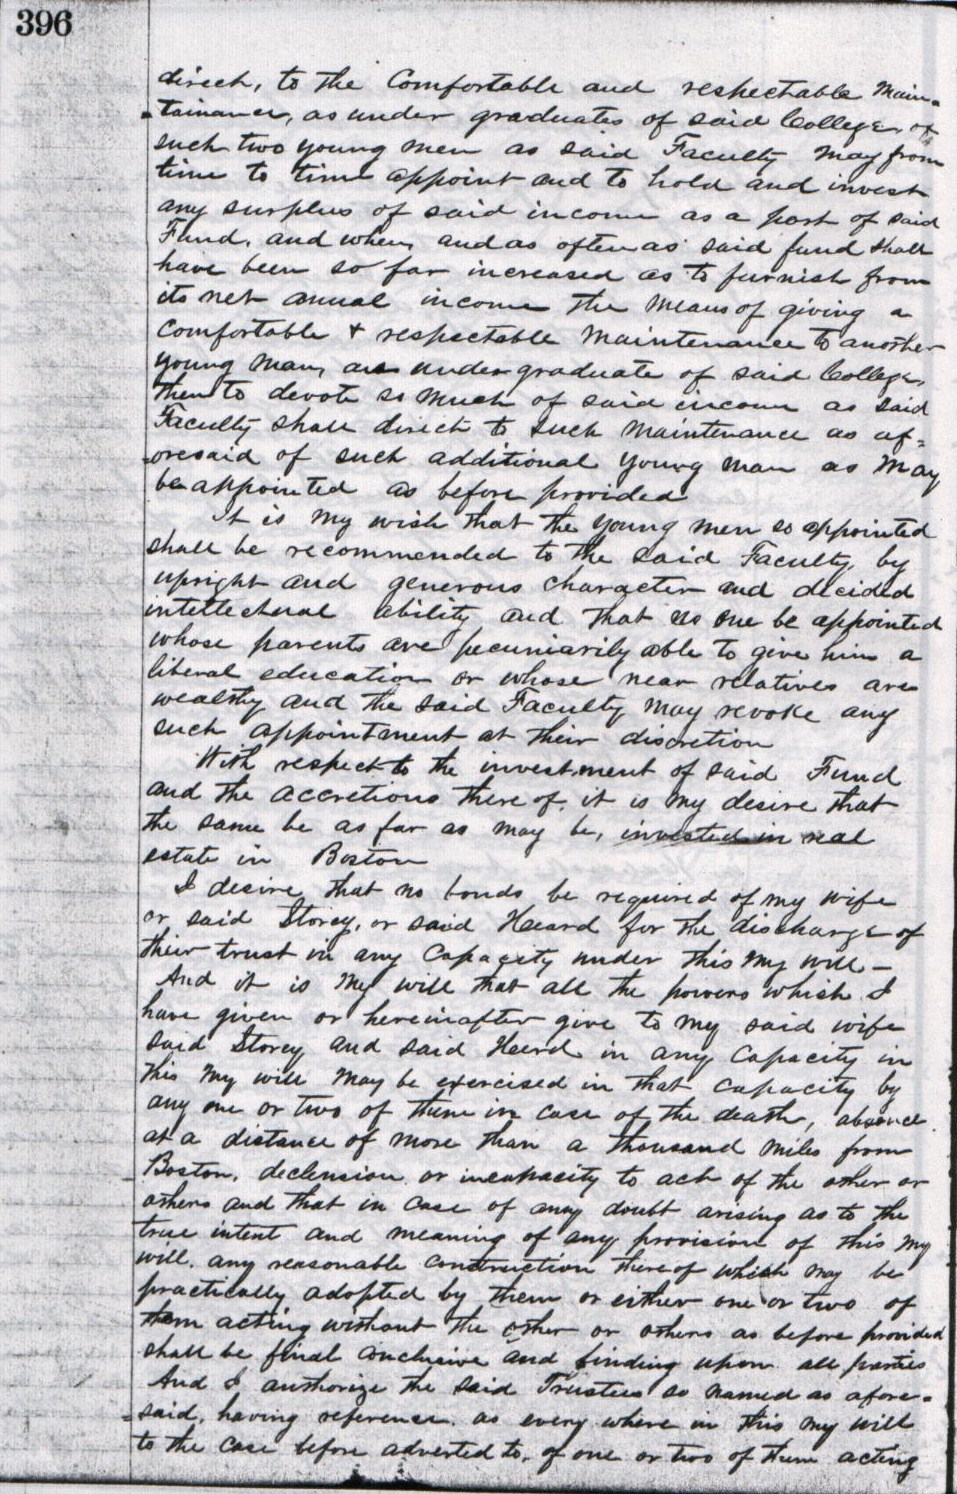 396
direct, to the Comfortable and respectable Main-
-tainance, as under graduates of said College, of
such two young men as said Faculty may from
time to time appoint and to hold and invest
any surplus of said income as a part of said
Fund, and when, and as often as said fund shall
have been so far increased as to furnish from
its net anual income the means of giving a
Comfortable & respectable Maintenance to another
young man, an under graduate of said College,
then to devote so much of said income as said
Faculty shall direct to such Maintenance as af=
=oresaid of such additional young man as may
be appointed as before provided
It is my wish that the young men so appointed
shall be recommended to the said Faculty, by
upright and generous character and decided
intellectual ability and that no one be appointed
whose parents are pecuniarily able to give him a
liberal education or whose near relatives are
wealthy and the said Faculty may revoke any
such appointment at their discretion
With respect to the investment of said Fund
and the accretions there of, it is my desire that
the same be as far as may be, invested in real
estate in Boston
I desire that no bonds be required of my wife
or said Storey, or said Heard for the discharge of
their trust in any Capacity under this my will –
And it is my will that all the powers which I
have given or hereinafter give to my said wife
said Storey and said Heard in any Capacity in
this my will may be exercised in that capacity by
any one or two of them in case of the death, absence
at a distance of more than a thousand miles from
Boston, declension or incapacity to act of the other or
others and that in case of any doubt arising as to the
true intent and meaning of any provision of this my
will, any reasonable construction thereof which may be
practically adopted by them or either one or two of
them acting without the other or others as before provided
shall be final conclusive and binding upon all parties
And I authorize the said Trustees so named as afore=
=said, having reference, as every where in this my will
to the case before adverted to, of one or two of them acting